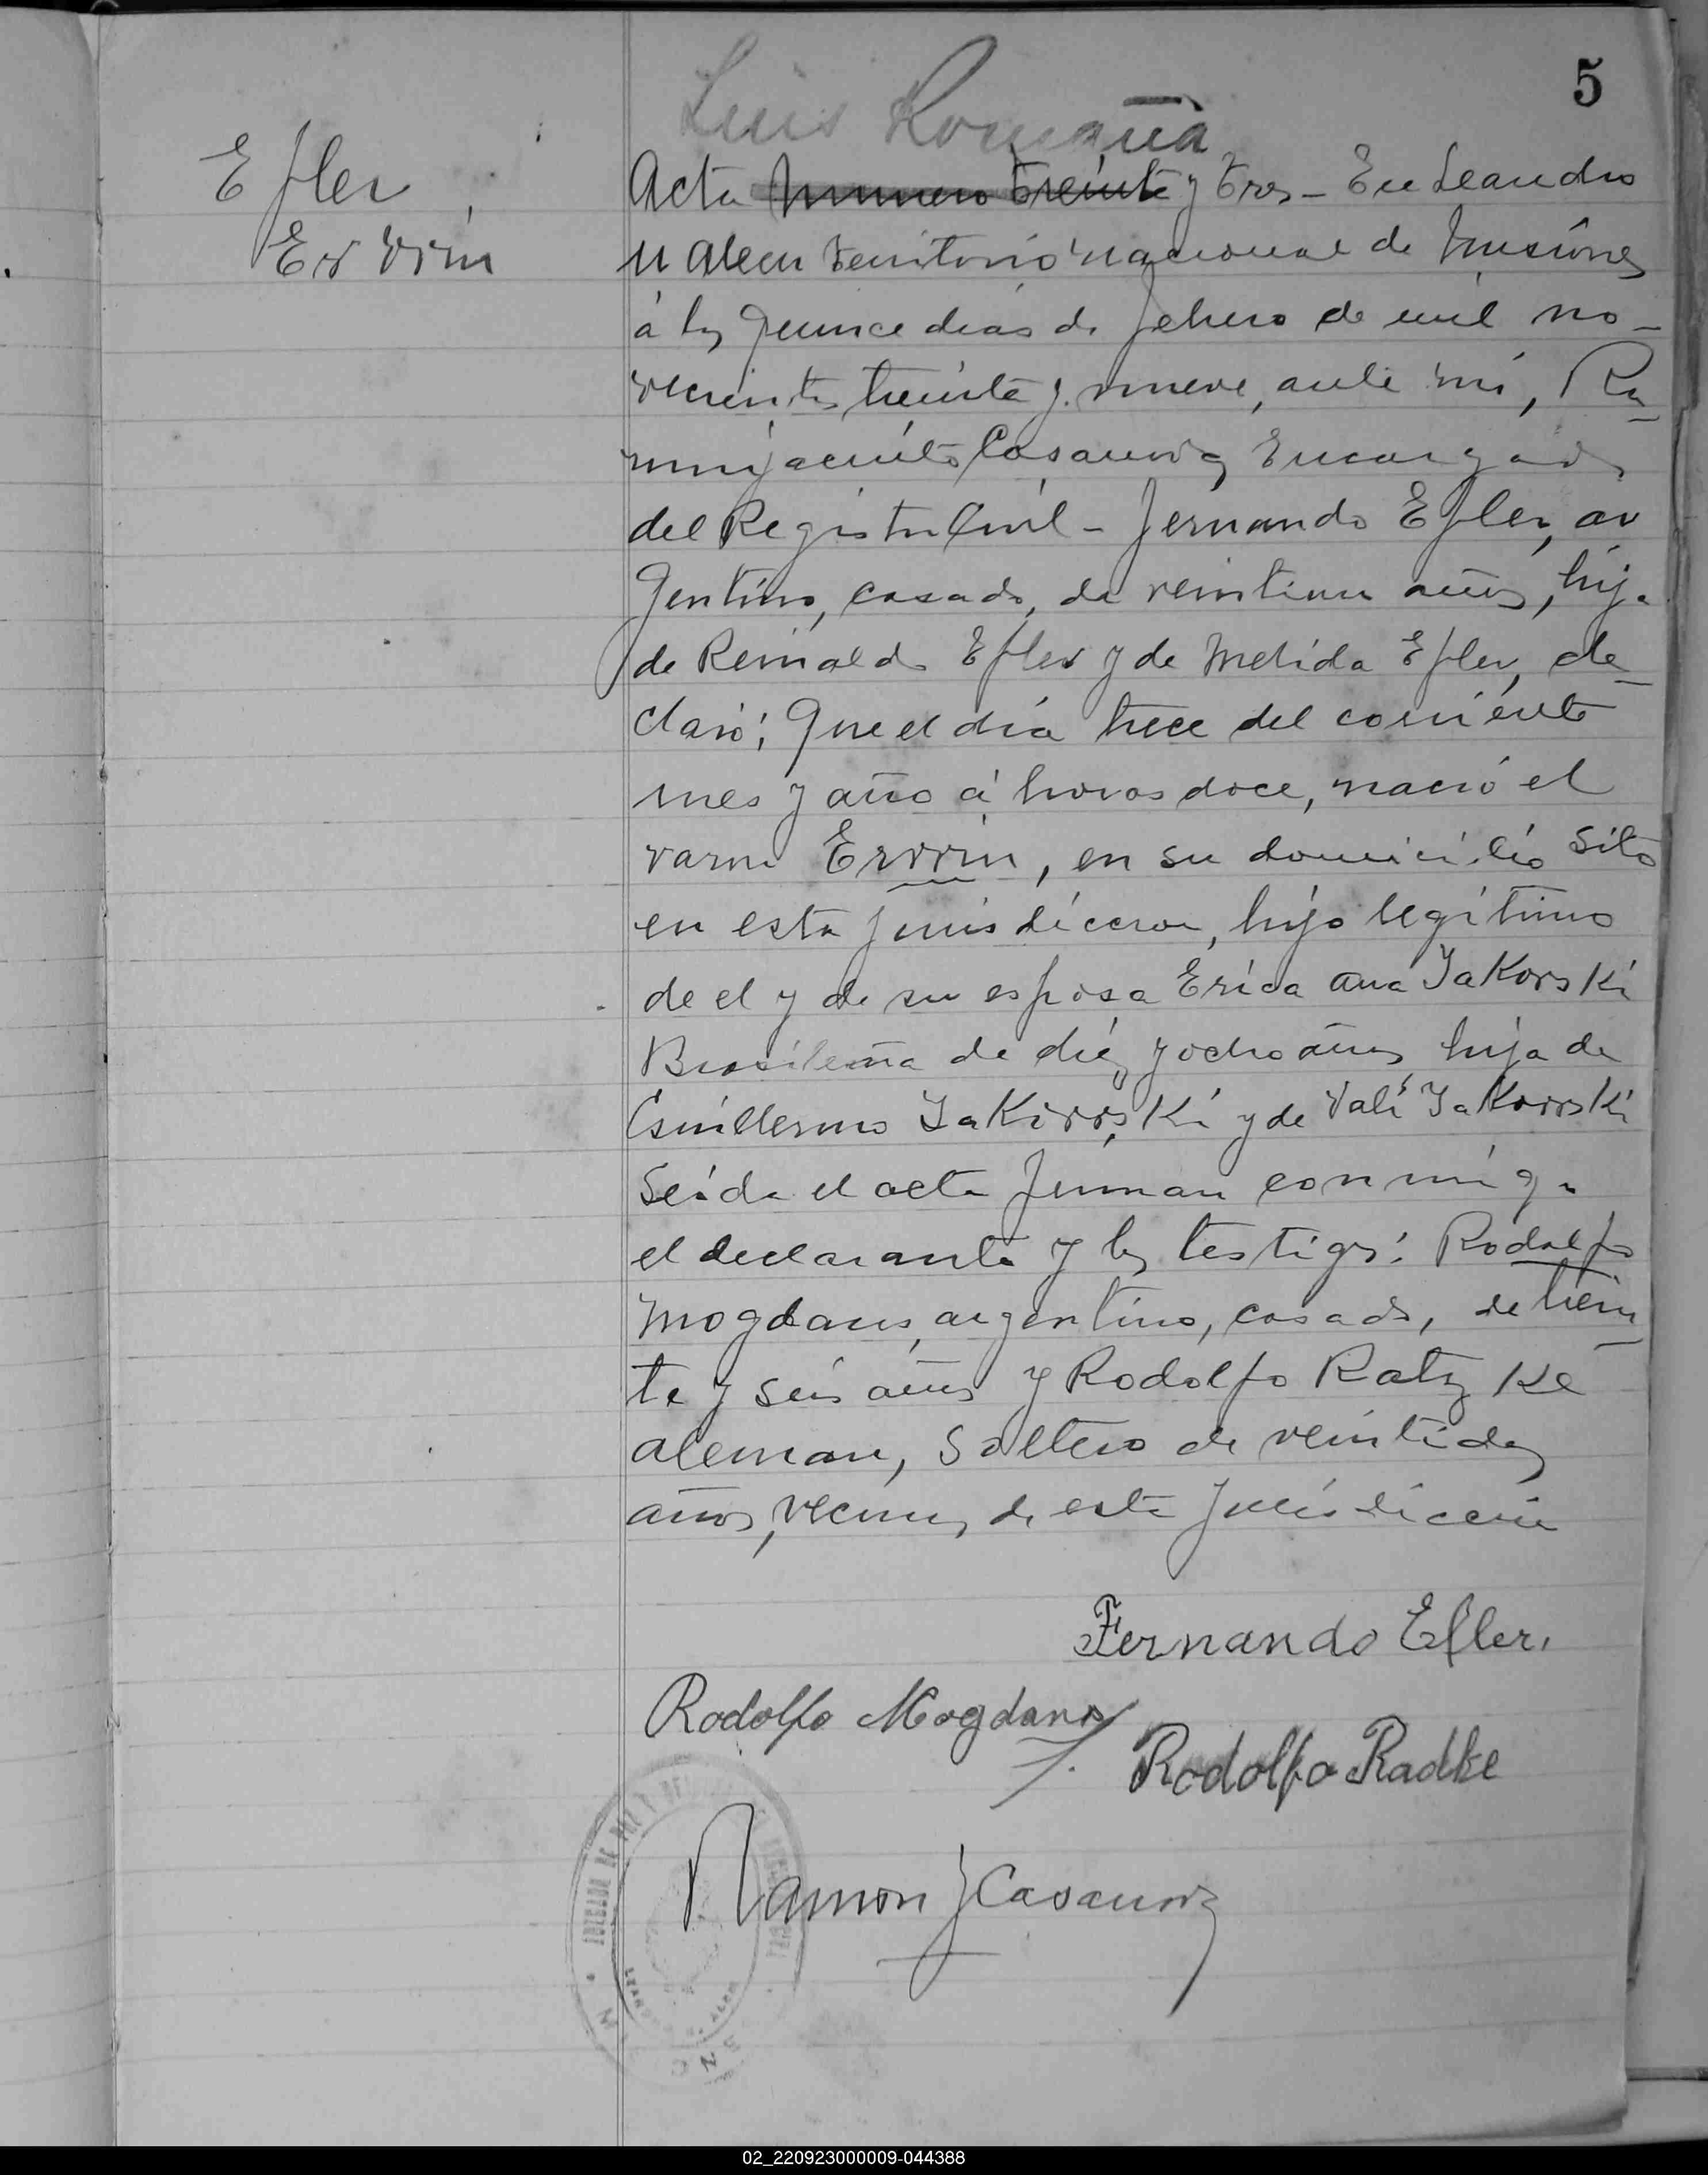 5
Luis Romaña
Efler
Ervvin
Acta numero treinta y tres - En Leandro
N Alem territorio nacional de Misiones
á los quince dias de febrero de mil no-
vecientos treinta y nueve, ante mi, Ra-
mon Jacinto Casanova, Encargado
del Registro Civil - Fernando Efler, ar
gentino, casado, de veintiun años, hijo
de Reinaldo Efler y de Melida Efler, de-
claró: Que el día trece del corriente
mes y año á horas doce, nació el
varon Ervvin, en su domicilio sito
en esta jurisdiccion, hijo legítimo
de el y de su esposa Erica Ana Jakovski
Brasileña de diez y ocho años, hija de
Guillermo Jakovvski y de Vali Jakovvski
Leida el acta firman conmigo
el declarante y los testigos: Rodolfo
Mogdans, argentino, casado, de trein-
ta y seis años y Rodolfo Ratzke
aleman, soltero de veintidos
años, vecinos de esta jurisdiccion
Fernando Efler.
Rodolfo Mogdans
Rodolfo Radke
Ramon J Casanova
02_220923000009-044388